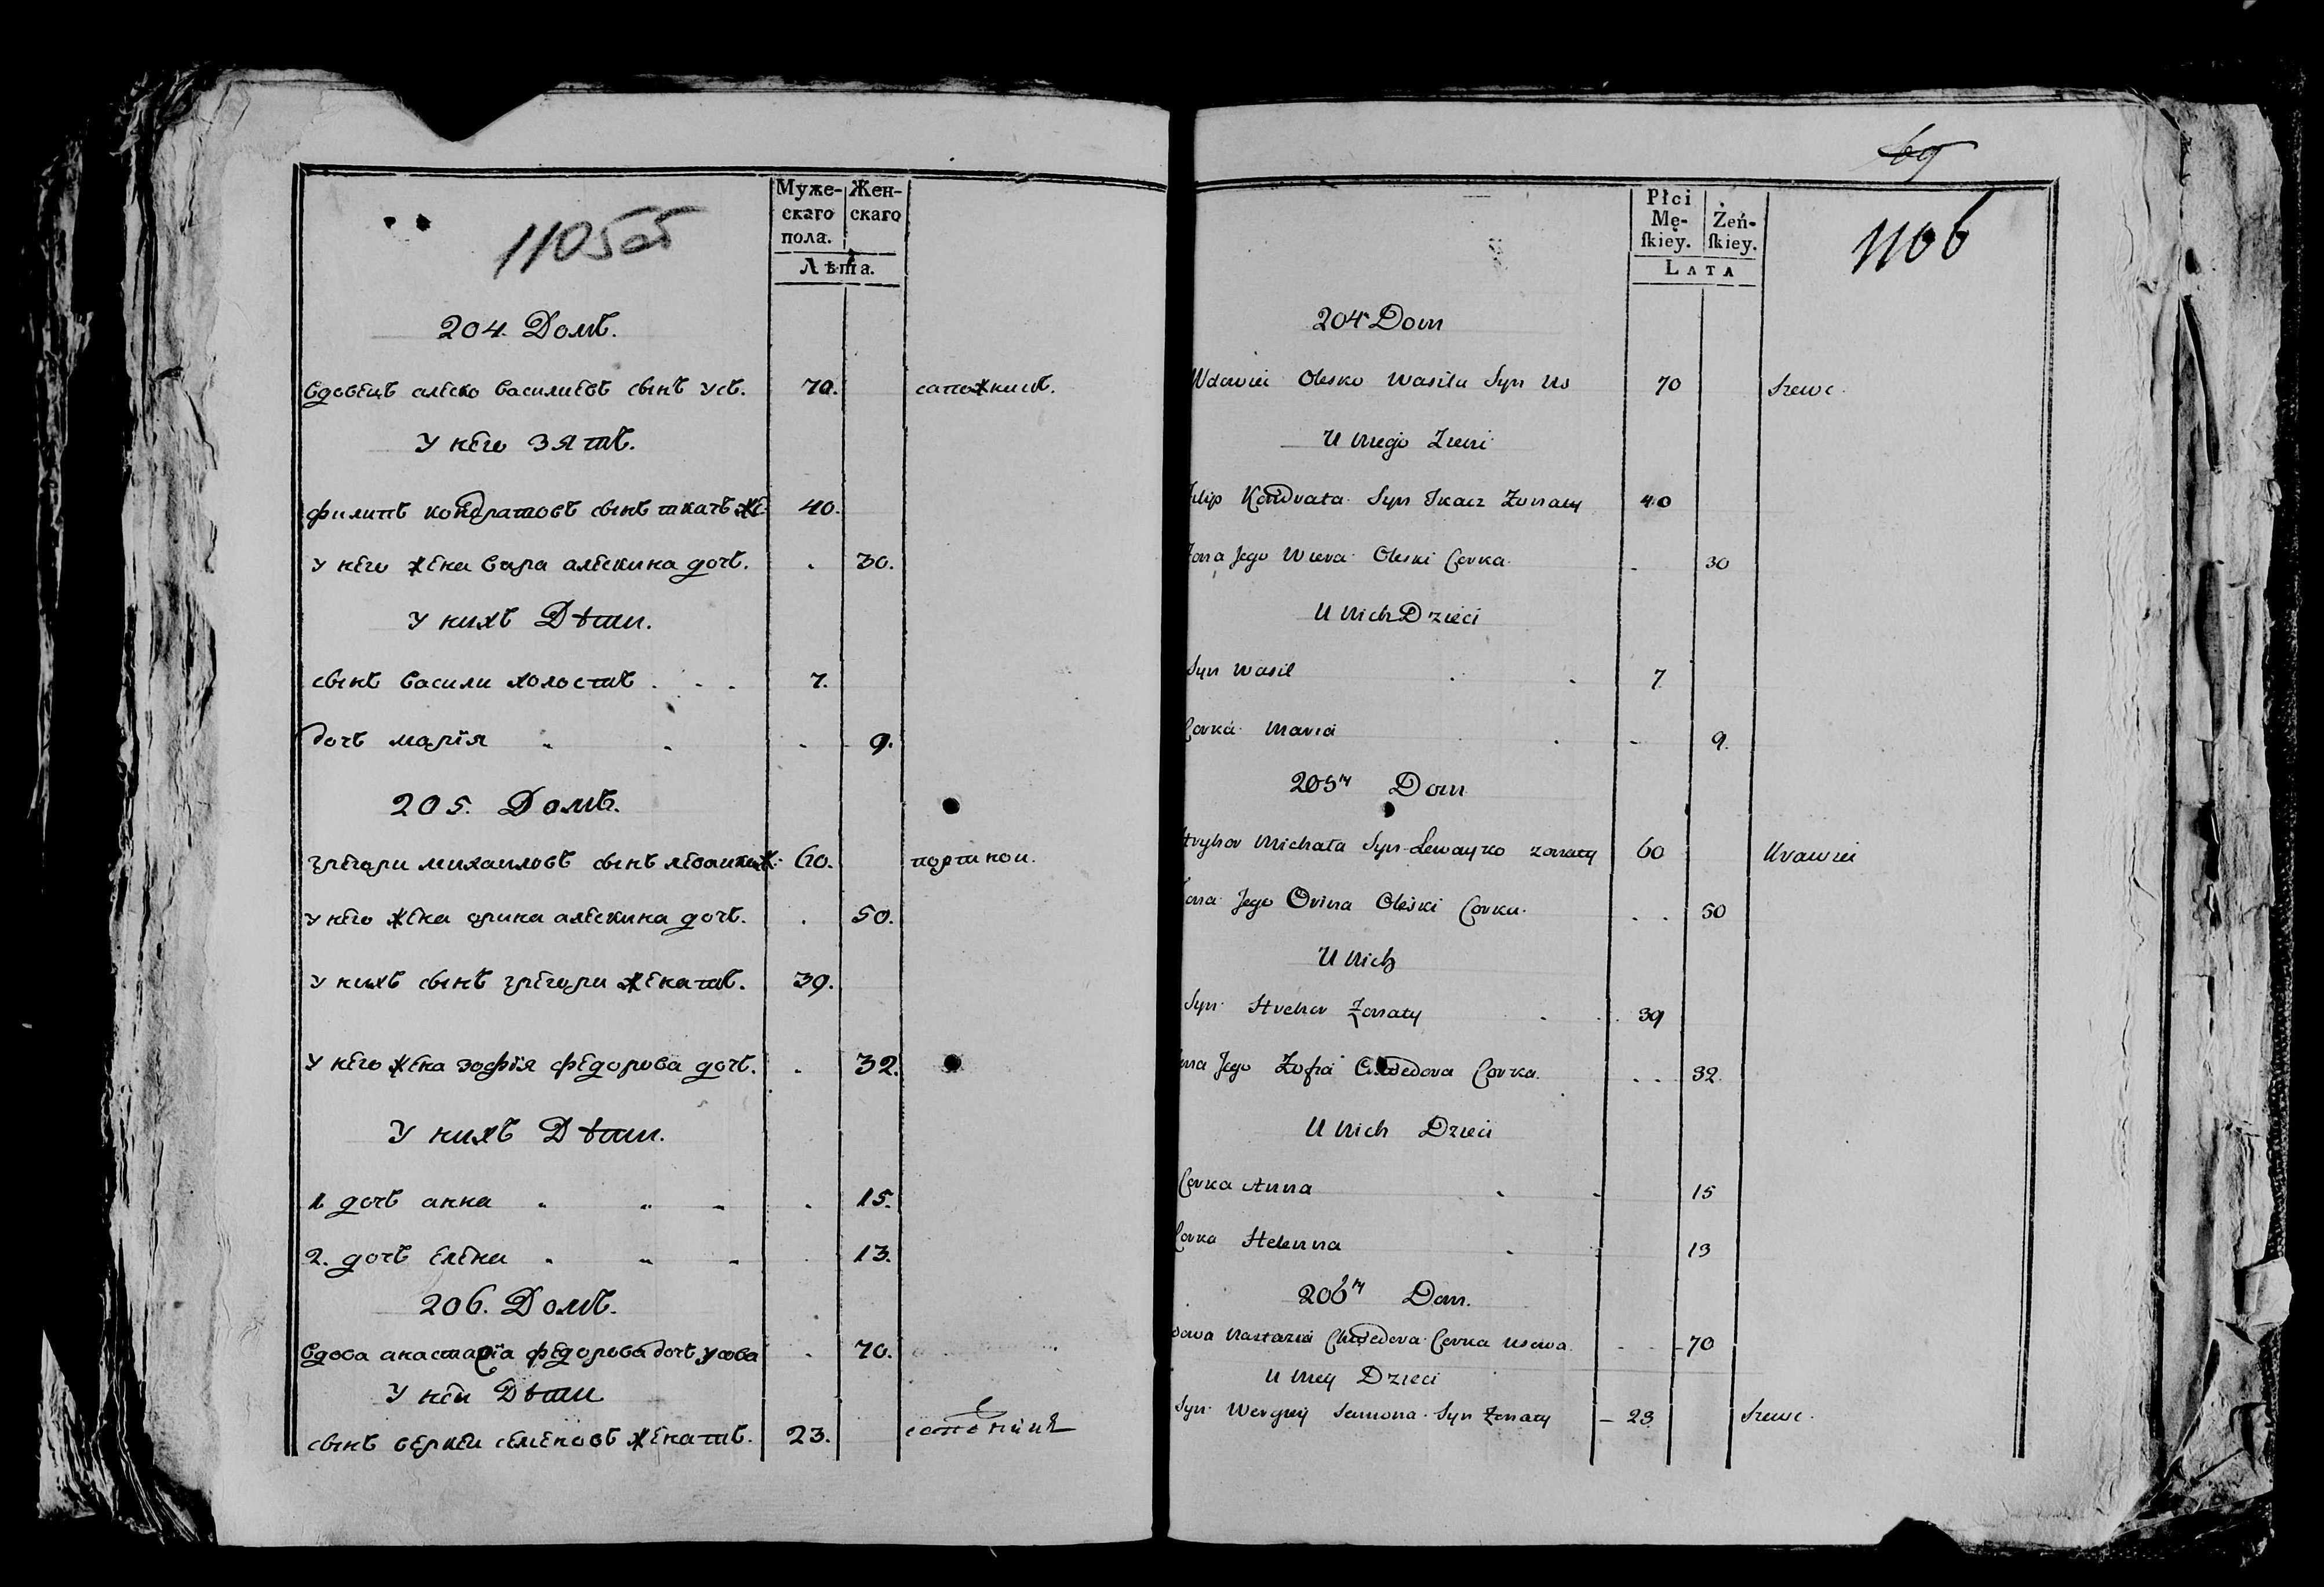 Муже-
скаго
пола.
Жен-
скаго
Лѣта.
1105об
204. Домъ.
Вдовецъ алеско василиевъ сынъ усъ. 70. сапожникъ.
У него зять.
филипъ кондратовъ сынъ ткачъ же. 40.
у него жена вера алескина дочь. 30.
У нихъ Дѣти.
сынъ васили холостъ 7.
дочь марїя 9.
205. Домъ.
григори михаиловъ сынъ ж. 60. портнои.
у него жена орина алескина дочь. 50.
у нихъ сынъ григори женатъ. 39.
У него жена зофїя федорова дочь. 32.
У нихъ Дѣти.
1 дочь анна 15.
2. дочь елена 13.
206. Домъ.
Вдова анастасїа федорова дочь усова 70.
У неи Дѣти
сынъ семеновъ женатъ. 23.
69
Płci
Mę-
ſkiey.
Żeń-
ſkiey.
LATA
1106
204 Dom
Wdowiec Olesko Wasila Syn Us 70 Szewc.
U niego Zienć
Filip Kondrata Syn Tkacz Żonaty 40
Żona Jego Wiera Oleski Corka 30
U Nich Dzieci
Syn Wasil 7
Corka Maria 9.
205ty Dom
Hryhor Michała Syn Lewayko żonaty 60 Krawiec
Żona Jego Orina Oleski Corka 50
U Nich
Syn Hrehor Żonaty 39
Żona Jego Zofia Chwedora Corka 32
U Nich Dzieci
Corka Anna 15
Corka Helenna 13
206ty Dom.
Wdowa Nastazia Chwedora Corka Usowa 70
U Niey Dzieci
Syn Semona Syn Żonaty 23 Szewc.